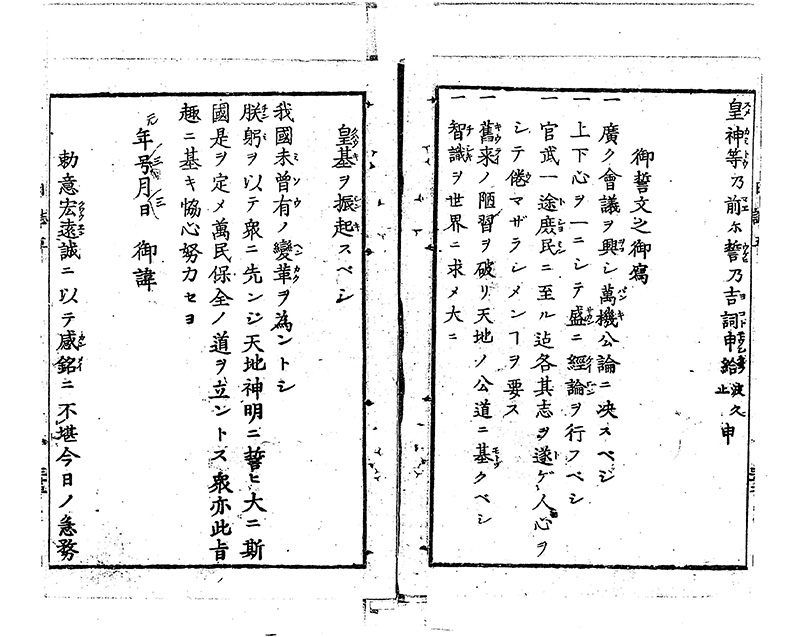 皇神等乃前尓誓乃吉詞申給波久申
御誓文之御寫
一 廣ク會議ヲ興シ萬機公論ニ决スベシ
一 上下心ヲ一ニシテ盛ニ經論ヲ行フベシ
一 官武一途庶民ニ至ル迠各其志ヲ遂ゲ人心ヲ
シテ倦マザラシメンヿヲ要ス
一 舊来ノ陋習ヲ破リ天地ノ公道ニ基クベシ
一 智識ヲ世界ニ求メ大ニ
皇基ヲ振起スベシ
我國未曾有ノ變革ヲ為ントシ
朕躬ヲ以テ衆ニ先ンジ天地神明ニ誓ヒ大ニ斯
國是ヲ定メ萬民保全ノ道ヲ立ントス衆亦此旨
趣ニ基キ恊心努力セヨ
年号月日 御諱
勅意宏遠誠ニ以テ感銘ニ不堪今日ノ急務